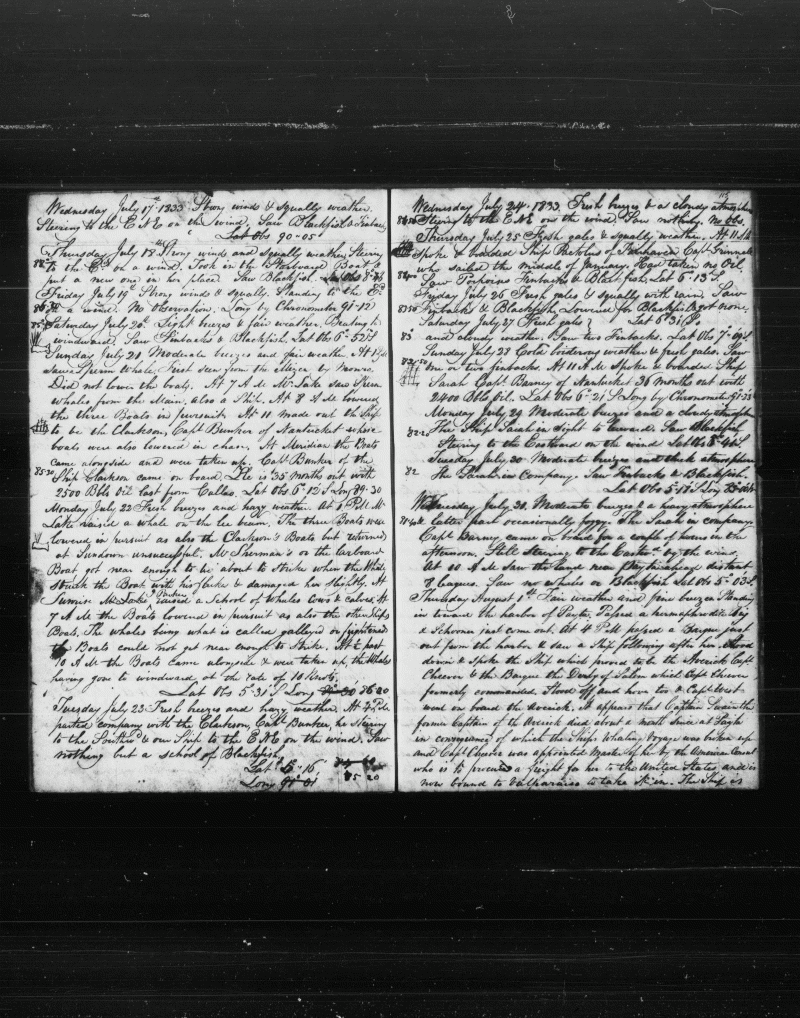 Wednesday July 17th 1833 Strong winds & Squally weather.
Steering to the ENE on the wind. Saw Blackfish & Finbacks
Lat Obs 90-05
Thursday July 18th Strong winds and Squally weather, Steering
to the Ed on a wind. Took in the Starboard Boat &
put a new one in her place. Saw Blackfish. Lat Obs
Friday July 19th Strong winds & Squally. Standing to the Ed
on a wind. No Observation. Long by Chronometer 91-12
Saturday July 20th Light breezes & fair weather. Beating to
windward. Saw Finbacks & Blackfish. Lat Obs 6-52 S
Sunday July 21 Moderate breezes and fair weather. At
saw a Sperm whale, First seen from the
Did not lower the boats. At 7 AM Mr Lake saw Sperm
whales from the Main, also a Ship. At 8 AM lowered
the three Boats in pursuit. At 11 made out the Ship
to be the Clarkson, Capt Bunker of Nantucket whose
boats were also lowered in chase. At Meridian the Boats
came alongside and were taken up. Capt Bunker of the
85-20 Ship Clarkson came on board. He is 35 months out with
2500 Bbls Oil last from Callao. Lat Obs 5-12 S Long 89-30
Monday July 22 Fresh breezes and hazy weather. At 1 PM Mr
Lake raised a whale on the lee beam. The three Boats were
lowered in pursuit as also the Clarkson's Boats but returned
at Sundown unsuccessful. Mr Sherman's on the larboard
Boat got near enough to be about to Strike when the Whale
Struck the Boat with his flukes & damaged her slightly. At
Sunrise Mr Bunker raised a School of Whales Cows & calves. At
7 AM the Boats lowered in pursuit as also the other Ships
Boats. The whales being what is called galleyed or frightened
the Boats could not get near enough to Strike. At ½ past
10 AM the Boats came alongside & were taken up, the Whales
having gone to windward, at the rate of 10 Knots.
Lat Obs 5-31 S Long 86 20
Tuesday July 23 Fresh breezes and hazy weather. At 4 PM
parted company with the Clarkson, Capt Bunker, he steering
to the Southwd & our Ship to the ENE on the wind. Saw
nothing but a school of Blackfish.
Lat 5-16
Long 85 20
Wednesday July 24. 1833. Fresh breezes & a cloudy atmosphere
Steering to the ENE on the wind. Saw nothing. No Obs
Thursday July 25 Fresh gales & squally weather. At 11 AM
Spoke & boarded Ship of Fairhaven Capt Grinnell
who sailed the middle of January. Has taken no Oil.
Saw Porpoises Finbacks & Blackfish. Lat 6-13 S
Friday July 26 Fresh gales & squally with rain. Saw
Finbacks & Blackfish, Lowered for Blackfish got none.
Saturday July 27 Fresh gales Lat 6-31 S
83 and cloudy weather. Saw two Finbacks. Lat Obs 7-09 S
Sunday July 28 Cold boisterous weather & fresh gales. Saw
one or two finbacks. At 11 AM Spoke & boarded Ship
Sarah Capt Barney of Nantucket 36 months out with
2400 Bbls Oil. Lat Obs 6-21 S Long by Chronometer
Monday July 29 Moderate breezes and a cloudy atmosphere
The Ship Sarah in sight to leeward. Saw Blackfish
82-20 Steering to the Eastward on the wind Lat Obs
Tuesday July 30 Moderate breezes and thick atmosphere
82 The Sarah in Company. Saw Finbacks & Blackfish.
Lat Obs 5-18 S Long
Wednesday July 31. Moderate breezes & a heavy atmosphere
& latter part occasionally foggy. The Sarah in company.
Capt Barney came on board for a couple of hours in the
afternoon. Still Steering to the Eastwd by the wind
At 10 AM Saw the land near distant
8 leagues. Saw no whales or Blackfish Lat Obs 5-03 S
Thursday August 1st Fair weather and fine breezes Standing
in toward the harbor of Payta. Passed a hermaphrodite brig
& Schooner just come out. At 4 PM passed a Barque just
out from the harbor & saw a Ship following after her. Stood
down & Spoke the Ship which proved to be the Maverick Capt
Cheever & the Barque the Derby of Salem which Capt Cheever
formerly commanded. Stood off and hove too & Capt West
went on board the Maverick. It appears that Captain
former Captain of the Maverick died about a month since at
in consequence of which the Ships Whaling Voyage was broken up
and Capt Cheever was appointed Master of her by the American Consul
who is to procure a freight for her to the United States and is
now bound to Valparaiso to take it in. The Ship is